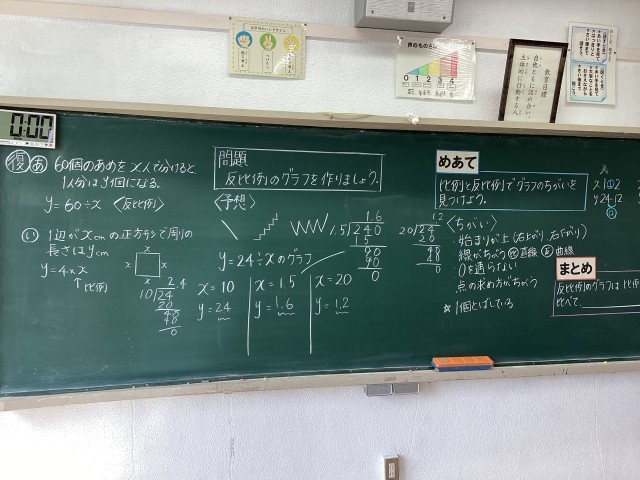 0:00
声のものさし
0 1 2 3 4
教育目標
自他ともに認め合い、
主体的に行動する人
復 あ 60個のあめをx人で分けると
1人分はy個になる。
y=60÷x 〈反比例〉
い 1辺がxcmの正方形で周りの
長さはycm
y=4×x
↑比例
x
x x
x
2.4
10)24
20
48
0
問題
反比例のグラフを作りましょう。
〈予想〉
y=24÷xのグラフ
x=10
y=24
x=15
y=1.6
x=20
y=1.2
1.6
1.5)240
15
90
90
0
1.2
20)24
20
48
48
0
めあて
比例と反比例でグラフのちがいを
見つけよう。
〈ちがい〉
・始まりが上(右上がり 右下がり)
・線がちがう 比 直線 反 曲線
・0を通らない
・点の求め方がちがう
☆1個とばしている
x 1 2
y 24 12
まとめ
反比例のグラフは比例
比べて